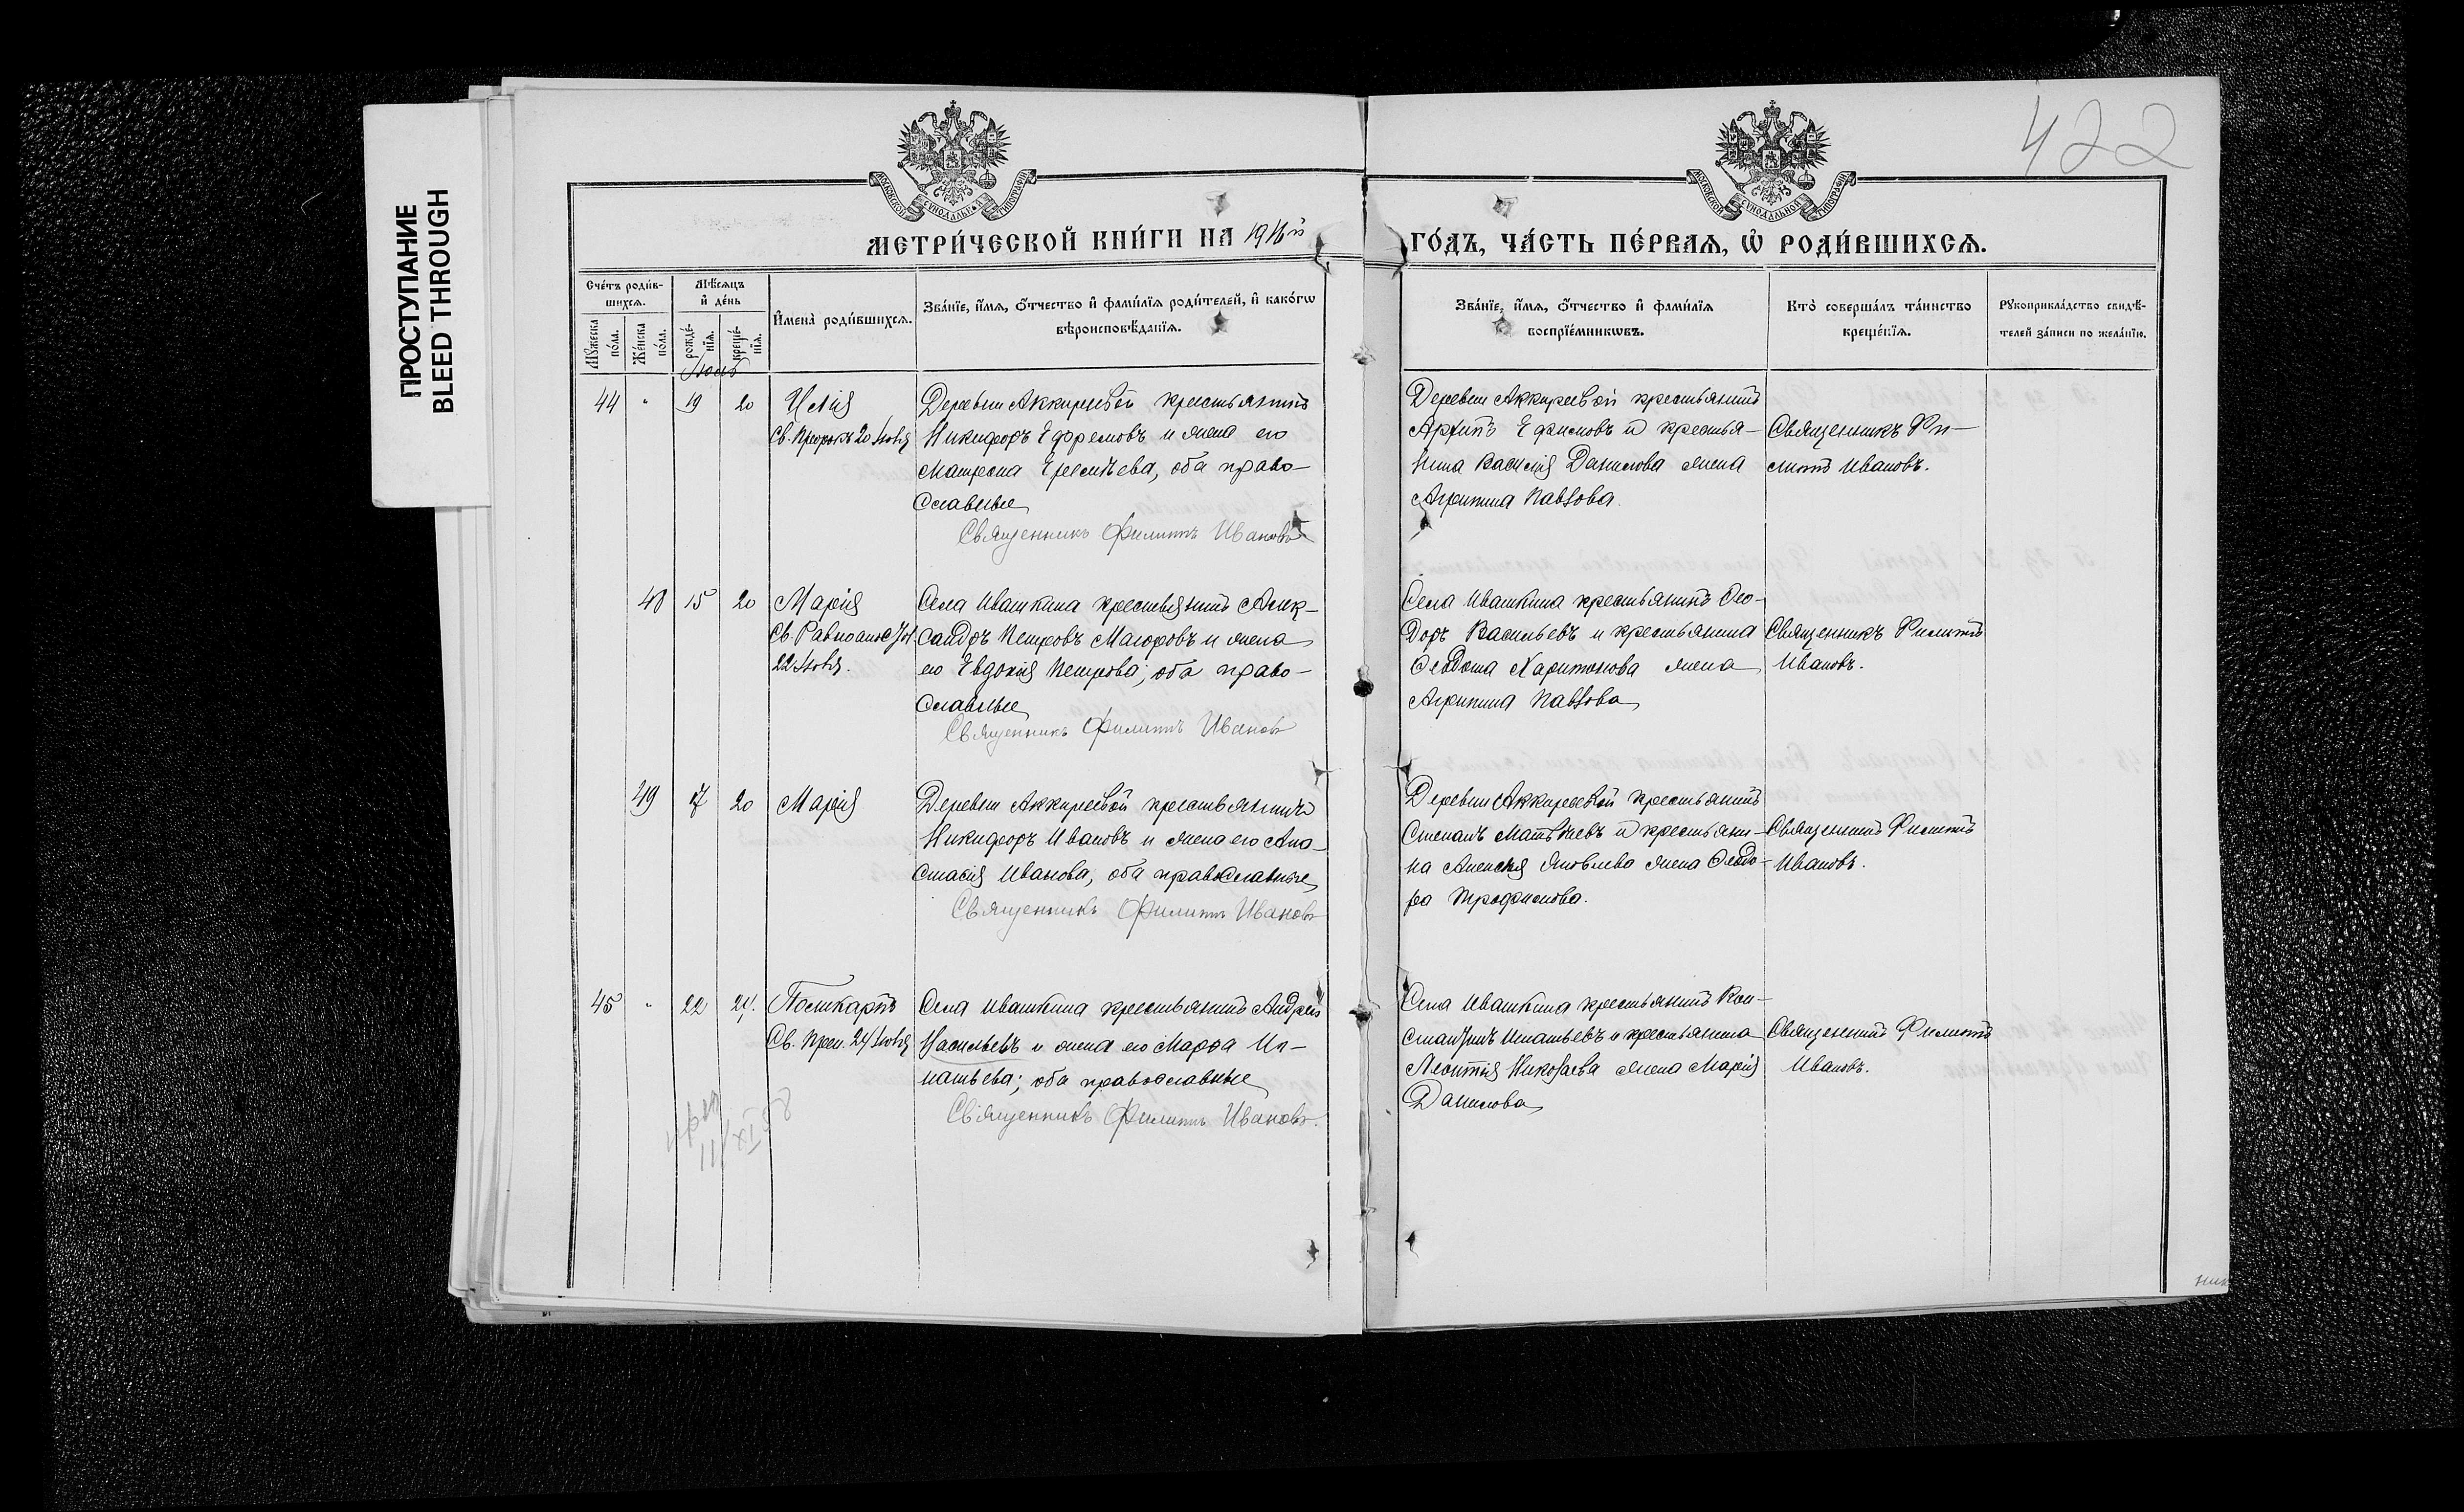 422
ПРОСТУПАНИЕ
BLEED THROUGH
МЕТРИ́ЧЕСКОЙ КНИ́ГИ НА 1916й
ГО́ДЪ, ЧА́СТЬ ПЕ́РВАЯ, Ѡ҆ РОДИ́ВШИХСЯ.
Сче́тъ роди́в-
шихся.
Мѣ́сяцъ
и҆ де́нь
Мꙋ́жеска по́ла.
Же́нска по́ла.
рожде́-
нїя.
креще́-
нїя.
И҆мена̀ роди́вшихся.
Зва́нїе, и҆́мя, ѻ҆́тчество и҆ фами́лїя роди́телей, и҆ како́гѡ
вѣроисповѣ́данїя.
Зва́нїе, и҆́мя, ѻ҆́тчество и҆ фами́лїя
воспрїе́мникѡвъ.
Кто̀ соверша́лъ та́инство
креще́нїя.
Рꙋкоприкла́дство свидѣ́-
телей за́писи по жела́нїю.
44 " 19 20 Илія
Св. Пророкъ 20 Іюля
Деревни Аккиреевой крестьянинъ
Никифоръ Ефремовъ и жена его
Матрона, оба право-
славные
Священникъ Филиппъ Ивановъ
Деревни Аккиреевой крестьянинъ
Архипъ Ефимовъ и крестья-
нина Василія Данилова жена
Агрипина Павлова.
Священникъ Фи-
липпъ Ивановъ.
48 15 20 Марія
Св. Равноапос
22 Іюля.
Села Ивашкина крестьянинъ Алек-
сандръ Петровъ Маіоровъ и жена
его Евдокія Петрова; оба право-
славные
Священникъ Филиппъ Ивановъ
Села Ивашкина крестьянинъ Ѳео-
доръ Васильевъ и крестьянина
Харитонова жена
Агрипина Павлова
Священникъ Филиппъ
Ивановъ.
49 17 20 Марія
Деревни Аккиреевой крестьянинъ
Никифоръ Ивановъ и жена его Ана-
стасія Иванова, оба православные
Священникъ Филиппъ Ивановъ
Деревни Аккиреевой крестьянинъ
Степанъ Матвѣевъ и крестьяни-
на Алексѣя Яковлева жена Ѳеодо-
ра Трофимова.
Священникъ Филиппъ
Ивановъ.
45 " 22 24. Поликарпъ
Св. Преп. 24 Іюля
Села Ивашкина крестьянинъ Андрей
Васильевъ и жена его Марѳа Иг-
натьева; оба православные
Священникъ Филиппъ Ивановъ.
Села Ивашкина крестьянинъ Кон-
стантинъ Игнатьевъ и крестьянина
Леонтія Николаева жена Марія
Данилова
Священникъ Филиппъ
Ивановъ.
11/XI 58